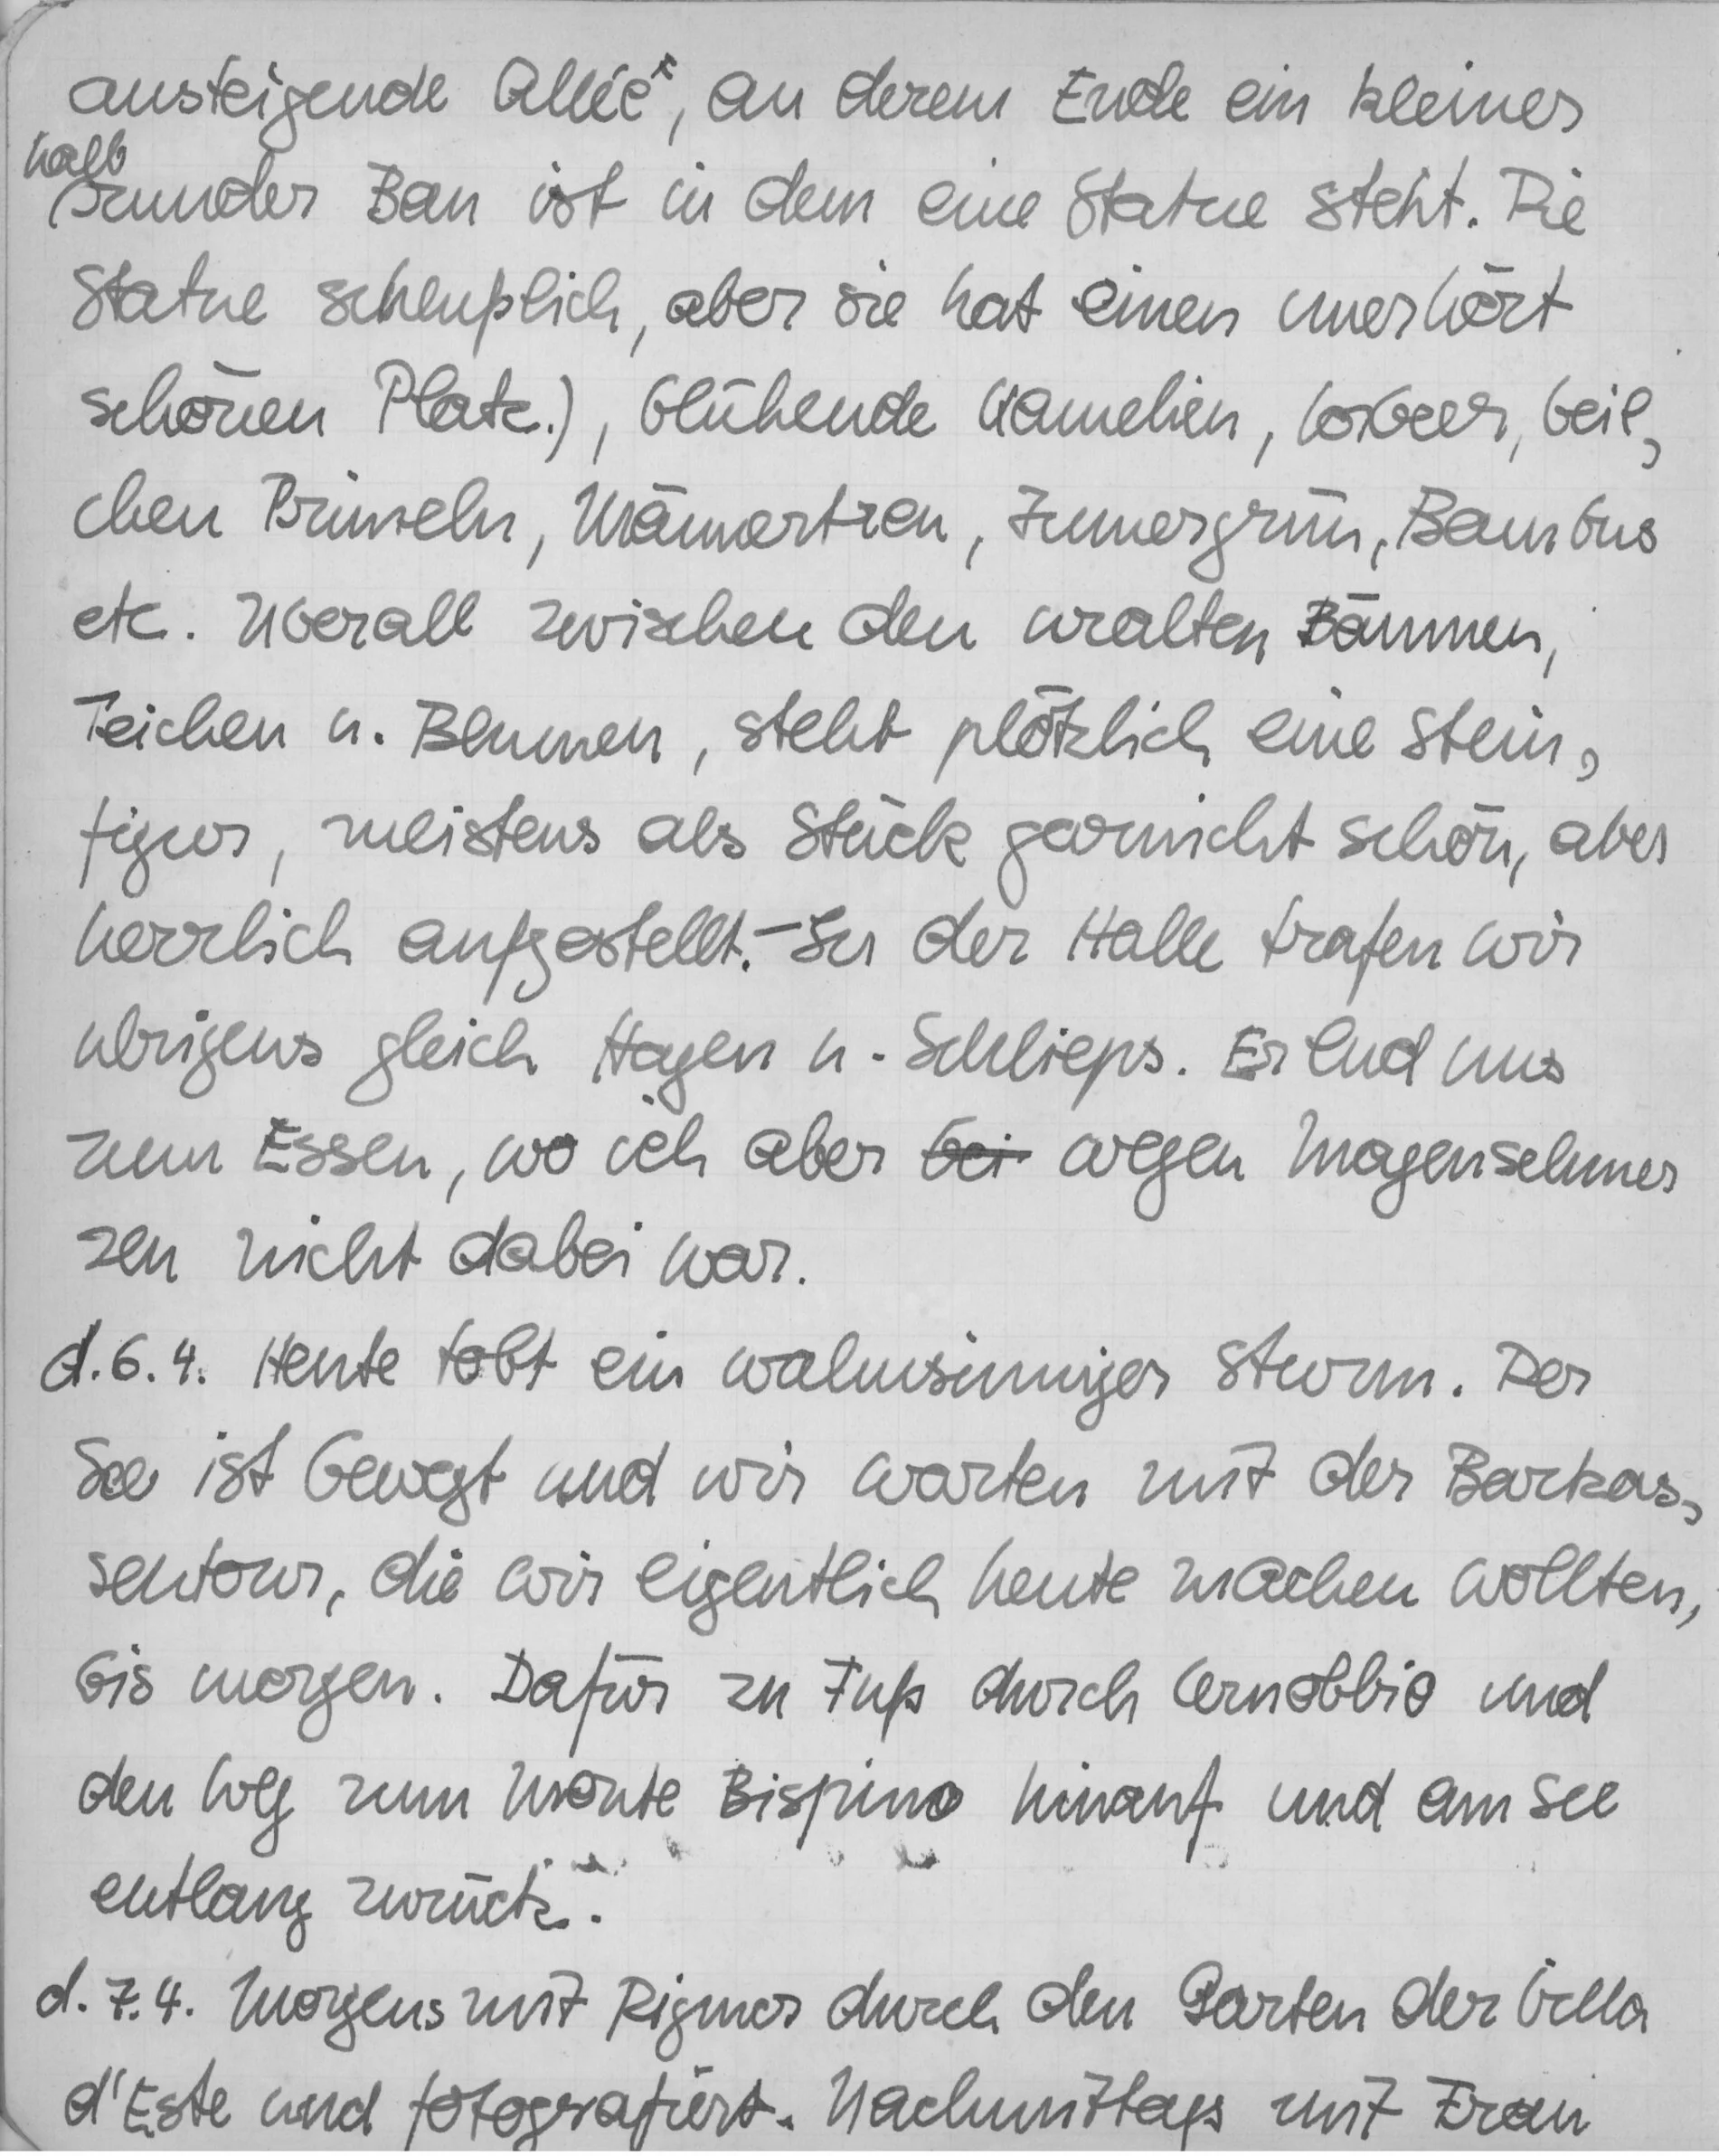 ansteigende Allée*, an derem Ende ein kleiner
halb
runder Bau ist in dem eine Statue steht. Die
Statue scheußlich, aber sie hat einen unerhört
schönen Platz.), blühende Kamelien, Lorbeer, Veil,
chen Primeln, Männertreu, Immergrün, Bambus
etc. Überall zwischen den uralten Bäumen,
Teichen u. Blumen, steht plötzlich eine Stein,
figur, meistens als Stück garnicht schön, aber
herrlich aufgestellt.- In der Halle trafen wir
übrigens gleich Hagen u. Schlieps. Er lud uns
zum Essen, wo ich aber bei wegen Magenschmer
zen nicht dabei war.
d. 6. 4. Heute tobt ein wahnsinniger Sturm. Der
See ist bewegt und wir warten mit der Barkas,
sentour, die wir eigentlich heute machen wollten,
bis morgen. Dafür zu Fuß durch Cernobbio und
den Weg zum Monte Bispino hinauf und am See
entlang zurück.
d. 7. 4. Morgens mit Rigmor durch den Garten der Villa
d'Este und fotografiert. Nachmittags mit Frau